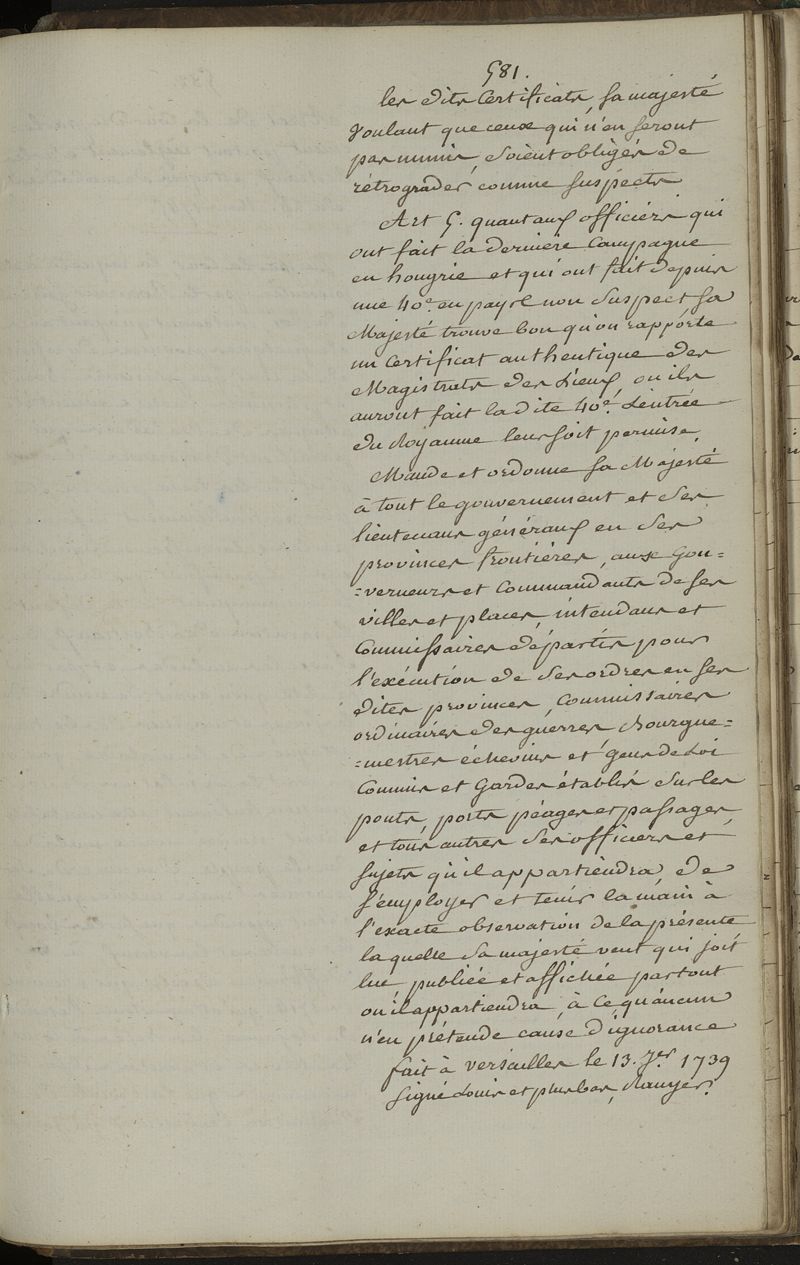 581.
les dits Certificats, sa majesté
Voulant que ceux qui n'en seront
pas munis, soient obligés de
rétrograder comme suspects
Art 5. quant aux officiers qui
ont fait la dernière Campagne
en hongrie et qui ont fait depuis
une 40e. en pays non suspect sa
Majesté trouve bon qu'on rapporte
un certificat authentique des
Magistrats des Lieux, ou ils
auront fait la dite 40e. L'entrée
du Royaume leur soit permise,
Mande et ordonne sa Majesté
à tout le gouvernement et ses
lieutenans généraux en ses
provinces frontières, aux Gou=
=verneurs et Commandants de ses
villes et places, intendans et
Commissaires départis pour
l'exécution de ses ordres en ses
dites provinces, Commissaires
ordinaires des guerres, Bourgue=
=mestres échevins et gens de Loi
Commis et Gardes établis sur les
ponts, ports péages et passages,
et tous autres ses officiers et
sujets qu'il appartiendra, de
s'employer et tenir la main à
l'exacte observation de la présente
la quelle sa majesté veut qui soit
lue publiée et affichée partout
ou il appartiendra, à ce qu'aucun
n'en prétende cause d'ignorance
fait à versailles le 13. 7er 1739
signé Louis et plus bas,